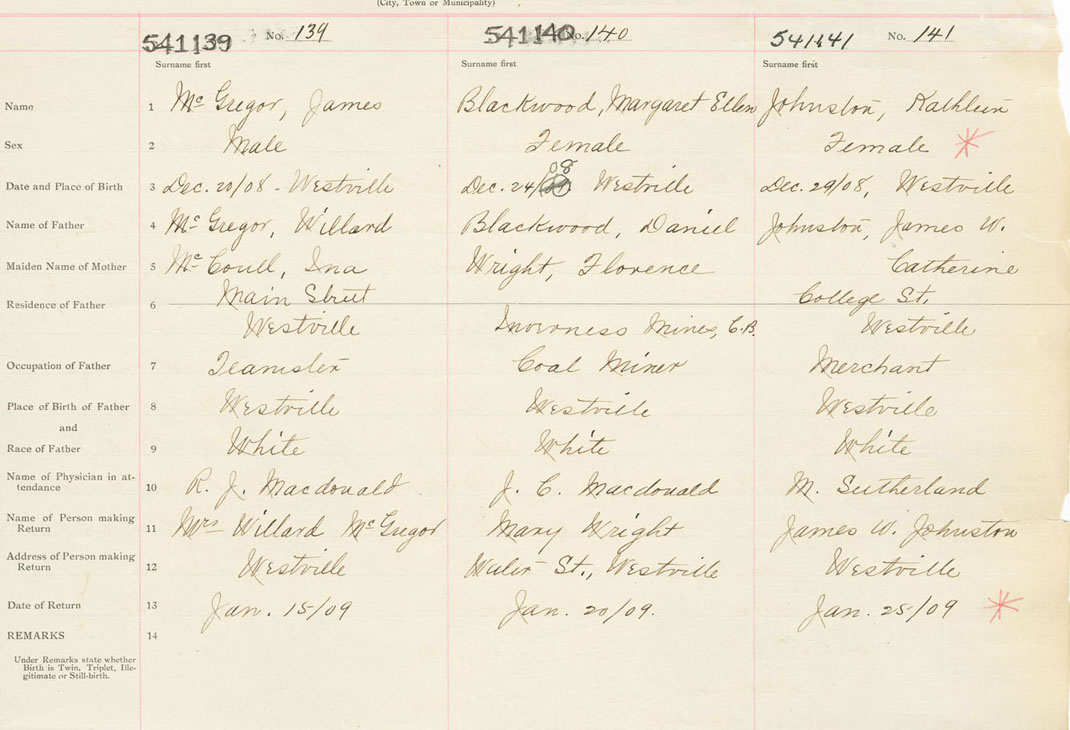 (City, Town or Municipality)
541139 No. 139 541140 No. 140 541141 No. 141
Surname first Surname first Surname first
Name 1 McGregor, James Blackwood, Margaret Ellen Johnston, Kathleen
Sex 2 Male Female Female
Date and Place of Birth 3 Dec. 20/08 - Westville Dec. 24/08 Westville Dec. 29/08, Westville
Name of Father 4 McGregor, Willard Blackwood, Daniel Johnston, James W.
Maiden Name of Mother 5 McCoull, Ina Wright, Florence Catherine
Main Street College St.
Residence of Father 6
Westville Inverness Mines, C.B. Westville
Occupation of Father 7 Teamster Coal Miner Merchant
Place of Birth of Father 8 Westville Westville Westville
and
Race of Father 9 White White White
Name of Physician in at-
tendance 10 R. J. Macdonald J. C. Macdonald M. Sutherland
Name of Person making
Return 11 Mrs Willard McGregor Mary Wright James W. Johnston
Address of Person making
Return 12 Westville St., Westville Westville
Date of Return 13 Jan. 15/09 Jan. 20/09. Jan. 25/09
REMARKS 14
Under Remarks state whether
Birth is Twin, Triplet, Ille-
gitimate or Still-birth.